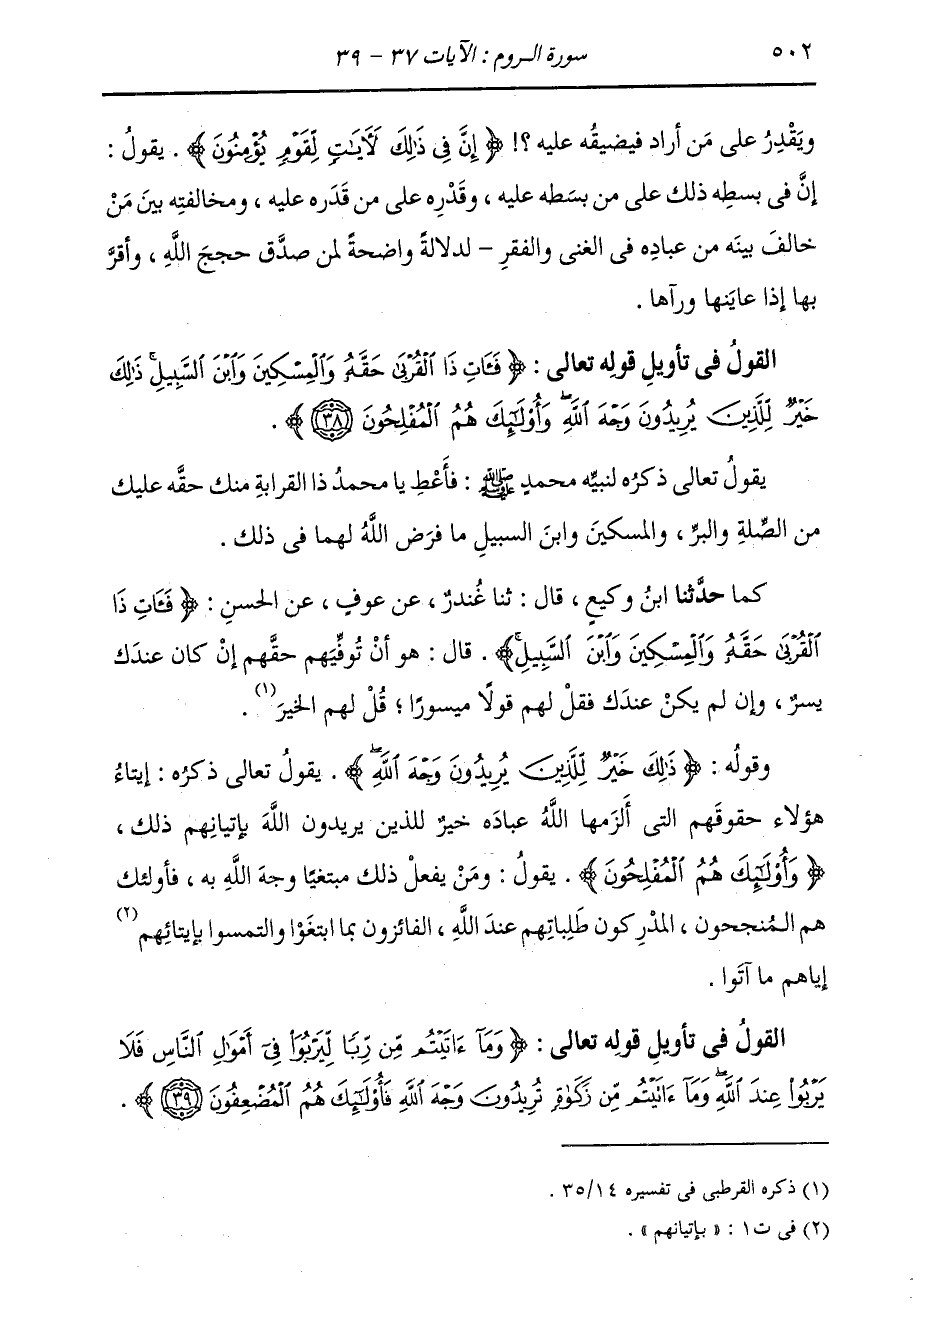 ٥٠٢ سورة الروم : الآيات ٣٧ - ٣٩
ويَقْدِرُ على مَن أراد فيضيقُه عليه ؟! ﴿ إِنَّ فِي ذَٰلِكَ لَآيَٰتٍ لِّقَوْمٍ يُؤْمِنُونَ ﴾ . يقولُ :
إنَّ فى بسطِه ذلك على من بسَطه عليه ، وقَدْرِه على من قَدَره عليه ، ومخالفتِه بينَ مَنْ
خالفَ بينَه من عبادِه فى الغنى والفقرِ - لدلالةً واضحةً لمن صدَّق حججَ اللَّهِ ، وأقرَّ
بها إذا عايَنها ورآها .
القولُ فى تأويلِ قولِه تعالى : ﴿ فَـَٔاتِ ذَا ٱلْقُرْبَىٰ حَقَّهُۥ وَٱلْمِسْكِينَ وَٱبْنَ ٱلسَّبِيلِ ۚ ذَٰلِكَ
خَيْرٌ لِّلَّذِينَ يُرِيدُونَ وَجْهَ ٱللَّهِ ۖ وَأُو۟لَٰٓئِكَ هُمُ ٱلْمُفْلِحُونَ ٣٨ ﴾ .
يقولُ تعالى ذكرُه لنبيِّه محمدٍ ﷺ : فأَعْطِ يا محمدُ ذا القرابةِ منك حقَّه عليك
من الصِّلةِ والبرِّ ، والمسكينَ وابنَ السبيلِ ما فرَض اللَّهُ لهما فى ذلك .
كما حدَّثنا ابنُ وكيعٍ ، قال : ثنا غُندرٌ ، عن عوفٍ ، عن الحسنِ : ﴿ فَـَٔاتِ ذَا
ٱلْقُرْبَىٰ حَقَّهُۥ وَٱلْمِسْكِينَ وَٱبْنَ ٱلسَّبِيلِ ۚ ﴾ . قال : هو أنْ تُوفِّيَهم حقَّهم إنْ كان عندَك
يسرٌ ، وإن لم يكنْ عندَك فقلْ لهم قولًا ميسورًا ؛ قُلْ لهم الخيرَ (١) .
وقولُه : ﴿ ذَٰلِكَ خَيْرٌ لِّلَّذِينَ يُرِيدُونَ وَجْهَ ٱللَّهِ ۖ ﴾ . يقولُ تعالى ذكرُه : إيتاءُ
هؤلاء حقوقَهم التى أَلزَمها اللَّهُ عبادَه خيرٌ للذين يريدون اللَّهَ بإتيانِهم ذلك ،
﴿ وَأُو۟لَٰٓئِكَ هُمُ ٱلْمُفْلِحُونَ ﴾ . يقولُ : ومَنْ يفعلْ ذلك مبتغيًا وجهَ اللَّهِ به ، فأولئك
هم المُنجحون ، المدْرِكون طَلِباتِهم عندَ اللَّهِ ، الفائزون بما ابتغَوْا والتمسوا بإيتائِهم (٢)
إياهم ما آتَوا .
القولُ فى تأويلِ قولِه تعالى : ﴿ وَمَآ ءَاتَيْتُم مِّن رِّبًا لِّيَرْبُوَا۟ فِىٓ أَمْوَٰلِ ٱلنَّاسِ فَلَا
يَرْبُوا۟ عِندَ ٱللَّهِ ۖ وَمَآ ءَاتَيْتُم مِّن زَكَوٰةٍ تُرِيدُونَ وَجْهَ ٱللَّهِ فَأُو۟لَٰٓئِكَ هُمُ ٱلْمُضْعِفُونَ ٣٩ ﴾ .
(١) ذكره القرطبى فى تفسيره ١٤/ ٣٥ .
(٢) فى ت١ : « بإتيانهم » .